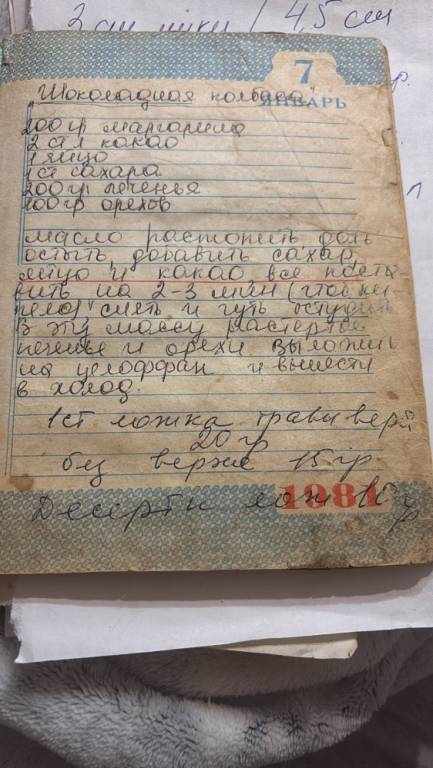 3 4,5 см
7
ЯНВАРЬ
Шоколадная колбаса"
200 гр маргарина
2 ст л какао
1 яйцо
1 ст сахара
200 гр печенья
100 гр орехов
масло растопить, дать
остыть, добавить сахар,
яйцо и какао все поста-
вить на 2-3 мин (чтоб ки-
пело) снять и чуть остудить
В эту массу растертое
печенье и орехи выложить
на целоффан и вынести
в холод.
1 ст ложка травы верх
20 гр
без верха 15 гр
Десертн лож 10 гр
1981